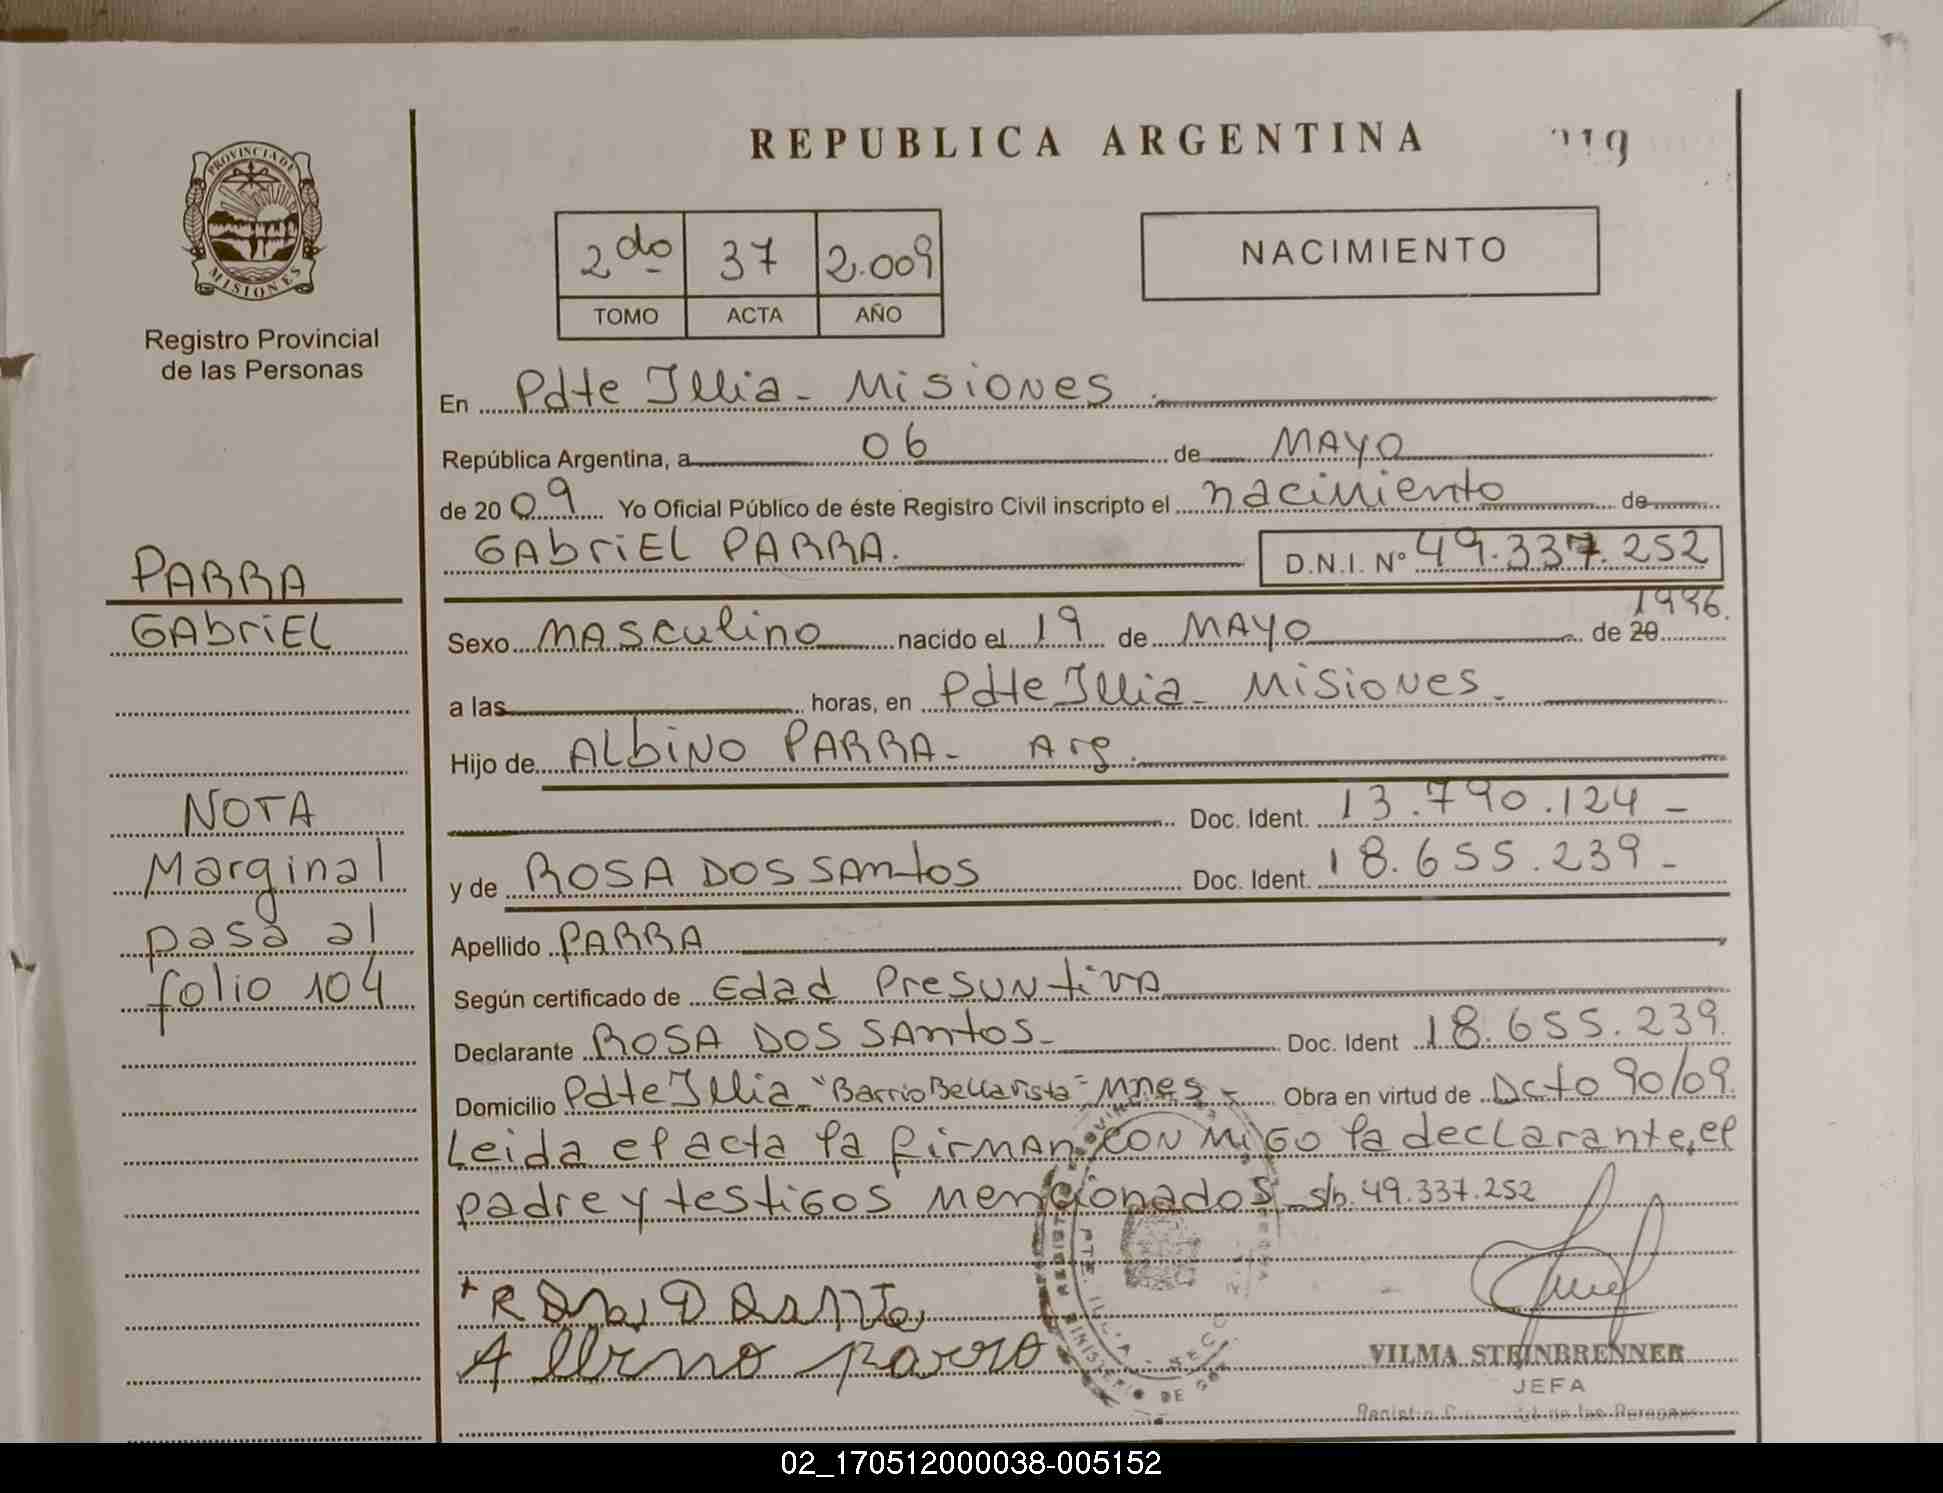 REPUBLICA ARGENTINA
PROVINCIA DE
MISIONES
Registro Provincial
de las Personas
2do 37 2.009
TOMO ACTA AÑO
NACIMIENTO
En Pdte Illia - Misiones.
República Argentina, a 06 de MAYO
de 20 09 Yo Oficial Público de éste Registro Civil inscripto el nacimiento de
GAbriEL PARRA. D.N.I. Nº 49.337.252
PARRA
GAbriEL
Sexo MASculino nacido el 19 de MAYO de 20 1996.
a las horas, en Pdte Illia - Misiones.
Hijo de ALbiNO PARRA - Arg.
Doc. Ident. 13.790.124 -
y de ROSA DOS SAntos Doc. Ident. 18.655.239 -
Apellido PARRA
Según certificado de Edad Presuntiva
Declarante ROSA DOS SAntos - Doc. Ident 18.655.239.
Domicilio Pdte Illia - "Barrio Bellavista" - Mnes - Obra en virtud de Dcto 90/09.
Leida el acta la firman con migo la declarante, el
padre y testigos mencionados - s/b. 49.337.252
NOTA
Marginal
pasa al
folio 104
Albino parra
VILMA STEINBRENNER
JEFA
02_170512000038-005152